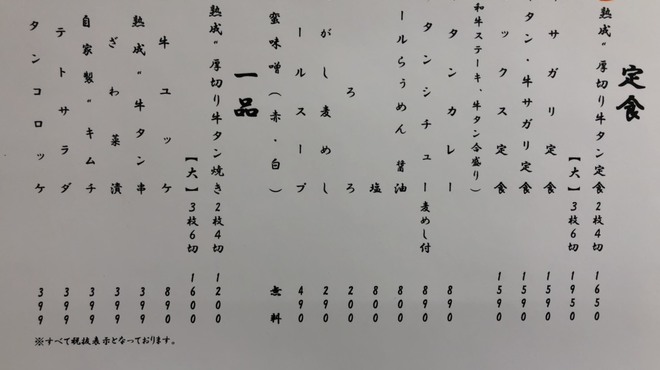 定食
熟成〝厚切り牛タン定食2枚4切 1650
【大】3枚6切 1950
サガリ定食 1590
タン・牛サガリ定食 1590
ックス定食 1590
和牛ステーキ、牛タン合盛り)
タンカレー 890
タンシチュー麦めし付 890
ールらうめん 醤油 800
塩 800
ろろ 200
がし麦めし 290
ールスープ 490
蜜味噌(赤・白) 無料
一品
熟成〝厚切り牛タン焼き2枚4切 1200
【大】3枚6切 1600
牛ユッケ 890
熟成〝牛タン串 399
ざわ菜漬 399
自家製〝キムチ 399
テトサラダ 399
タンコロッケ 399
※すべて税抜表示となっております。